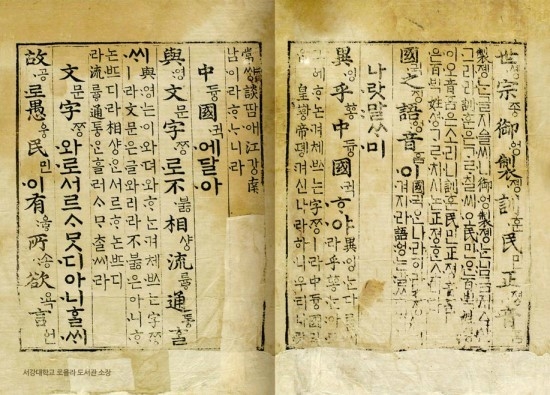 世솅宗조ᇰ御엉製졩訓훈民민正져ᇰ音
製졩는글지ᅀᅳᆯ씨니御엉製졩는님금지ᅀᅳ샨
그리라訓훈은ᄀᆞᄅᆞ칠씨오民민은百ᄇᆡᆨ姓셔ᇰ
이오音ᅙᅳᆷ은소리니訓훈民민正져ᇰ音ᅙᅳᆷ
은百ᄇᆡᆨ姓셔ᇰᄀᆞᄅᆞ치시논正져ᇰᄒᆞᆫ소리라
國귁之징語ᅌᅥᆼ音ᅙᅳᆷ이
國귁ᄋᆞᆫ나라히라之징ᄂᆞᆫ입
겨지라語ᅌᅥᆼ는말ᄊᆞ미라
나랏말ᄊᆞ미
異잉乎ᅘᅩᆼ中듀ᇰ國귁ᄒᆞ야
異잉는다ᄅᆞᆯ씨라乎ᅘᅩᆼ는아모
그ᅌᅦᄒᆞ논겨체ᄡᅳ는字ᄍᆞᆼㅣ라中듀ᇰ國귁ᄋᆞᆫ
皇ᅘᅪᇰ帝뎽겨신나라히니우리나랏
常쌰ᇰ談땀애江가ᇰ南
남이라ᄒᆞᄂᆞ니라
中듀ᇰ國귁에달아
與영文문字ᄍᆞᆼ로不부ᇙ相샤ᇰ流류ᇢ通토ᇰᄒᆞᆯ
ᄊᆡ
與영는이와뎌와ᄒᆞ는겨체ᄡᅳ는字ᄍᆞᆼ
ㅣ라文문은글와리라不부ᇙ은아니ᄒᆞ
논ᄠᅳ디라相샤ᇰᄋᆞᆫ서르ᄒᆞ논ᄠᅳ디
라流류ᇢ通토ᇰᄋᆞᆫ흘러ᄉᆞᄆᆞᄎᆞᆯ씨라
文문字ᄍᆞᆼ와로서르ᄉᆞᄆᆞᆺ디아니ᄒᆞᆯᄊᆡ
故공로愚웅民민이有우ᇢ所송欲욕言ᅌᅥᆫ
서강대학교 로욜라 도서관 소장